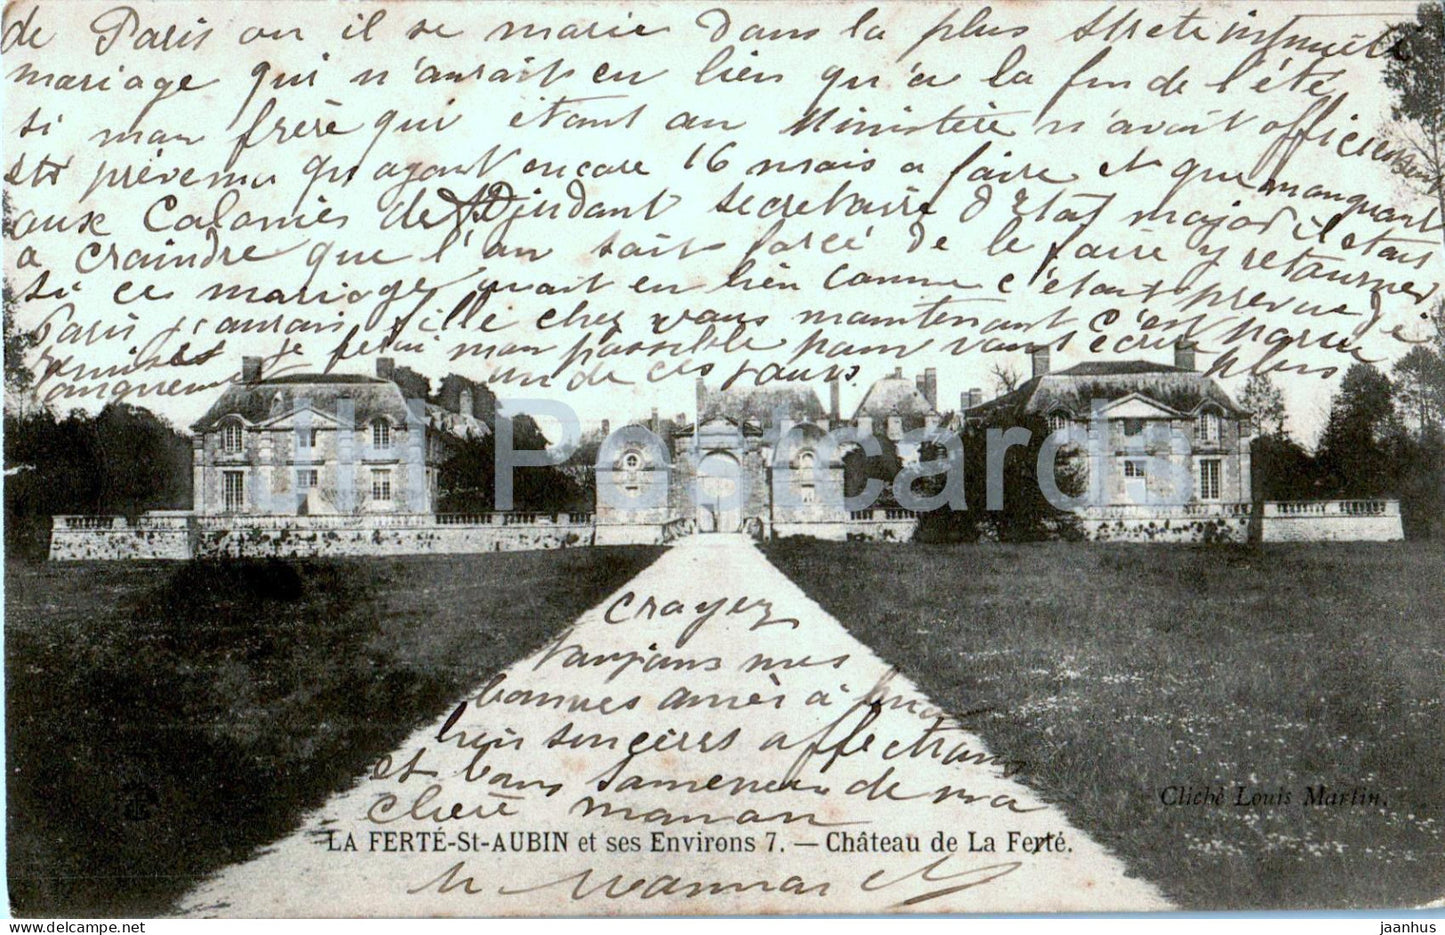 de Paris ou il se marie dans la plus strete intimité
mariage qui n'aurait eu lieu qu'a la fin de l'été
si mon frère qui étant au Ministère n'avait officieusement
été prévenu qu'ayant encore 16 mois a faire et que manquant
aux Colonies de d'Adjudant secretaire d'Etat major il etait
a craindre que l'on soit forcé de le faire y retourner
si ce mariage avait eu lieu comme c'etait prevue de
Paris j'aurais fillé chez vous maintenant c'est partie
remises je ferai mon possible pour vous écrire plus
longuement un de ces jours.
Croyez
toujours mes
bonnes amies à
bien sincères affections
et bons de ma
chère maman
LA FERTÉ-St-AUBIN et ses Environs 7. — Château de La Ferté.
Cliché Louis Martin.
JH Postcards
jaanhus | delcampe.net